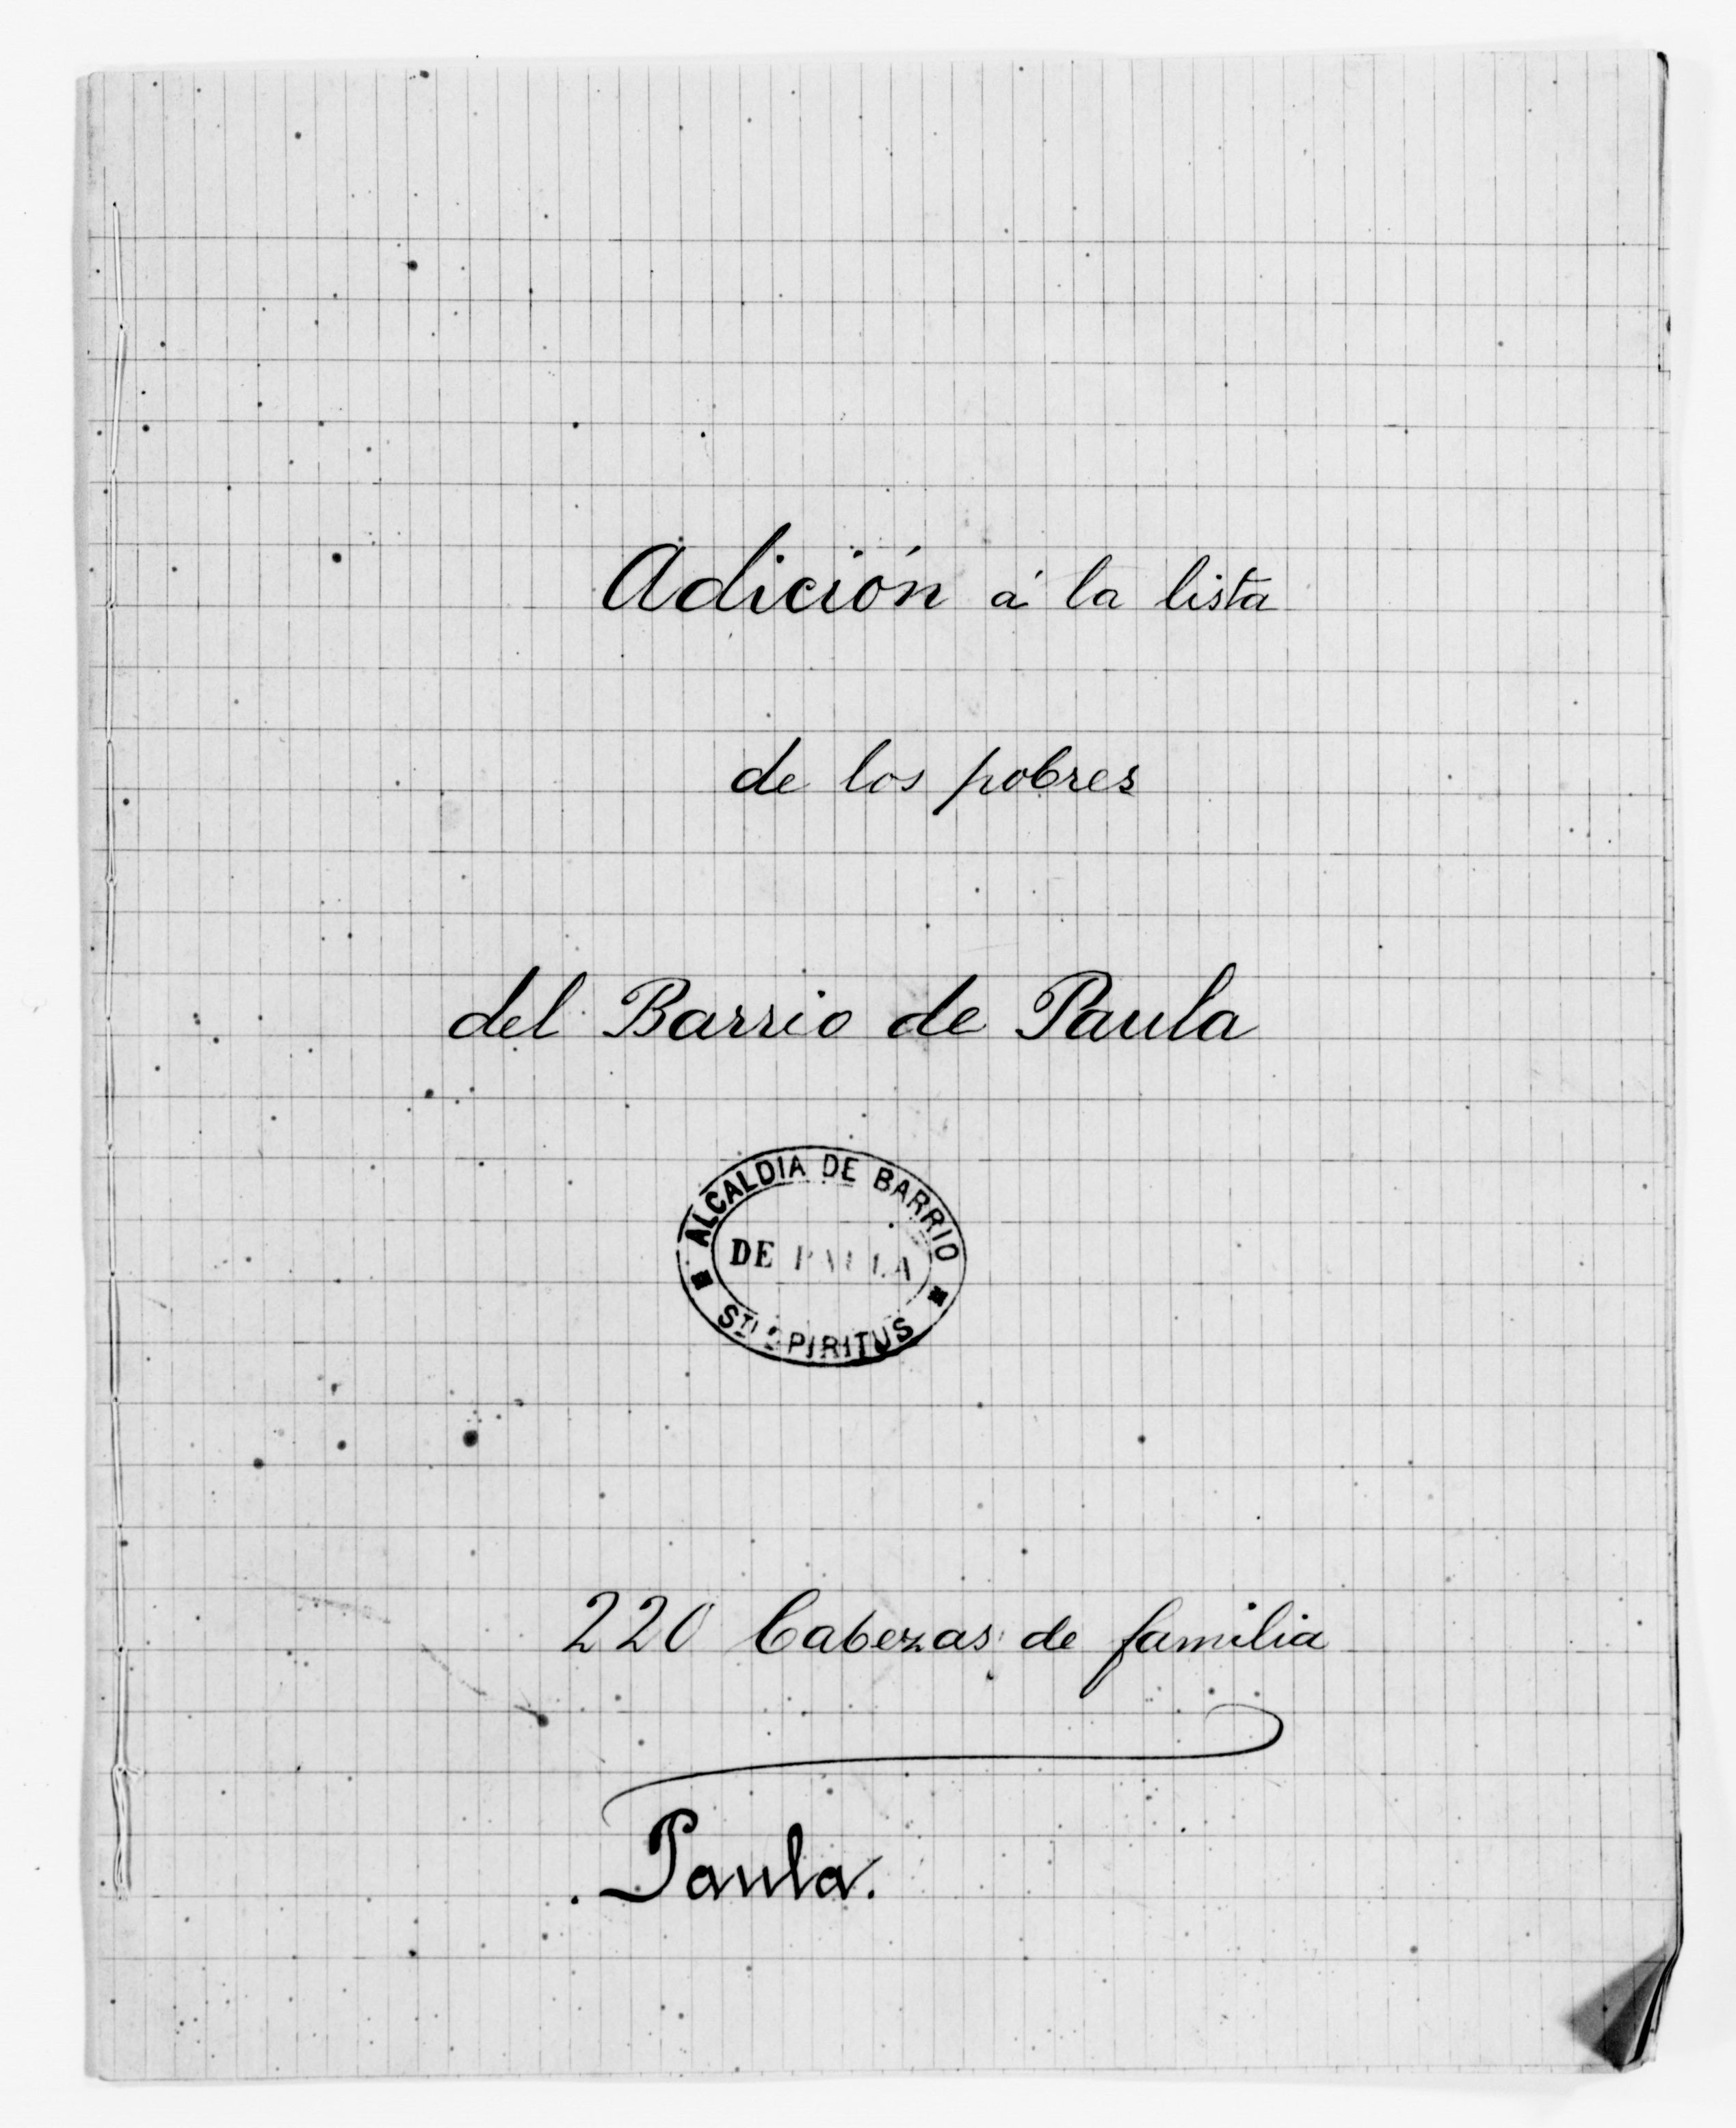 Adición á la lista
de los pobres
del Barrio de Paula
ALCALDIA DE BARRIO
DE PAULA
STI SPIRITUS
220 Cabezas de familia
Paula.